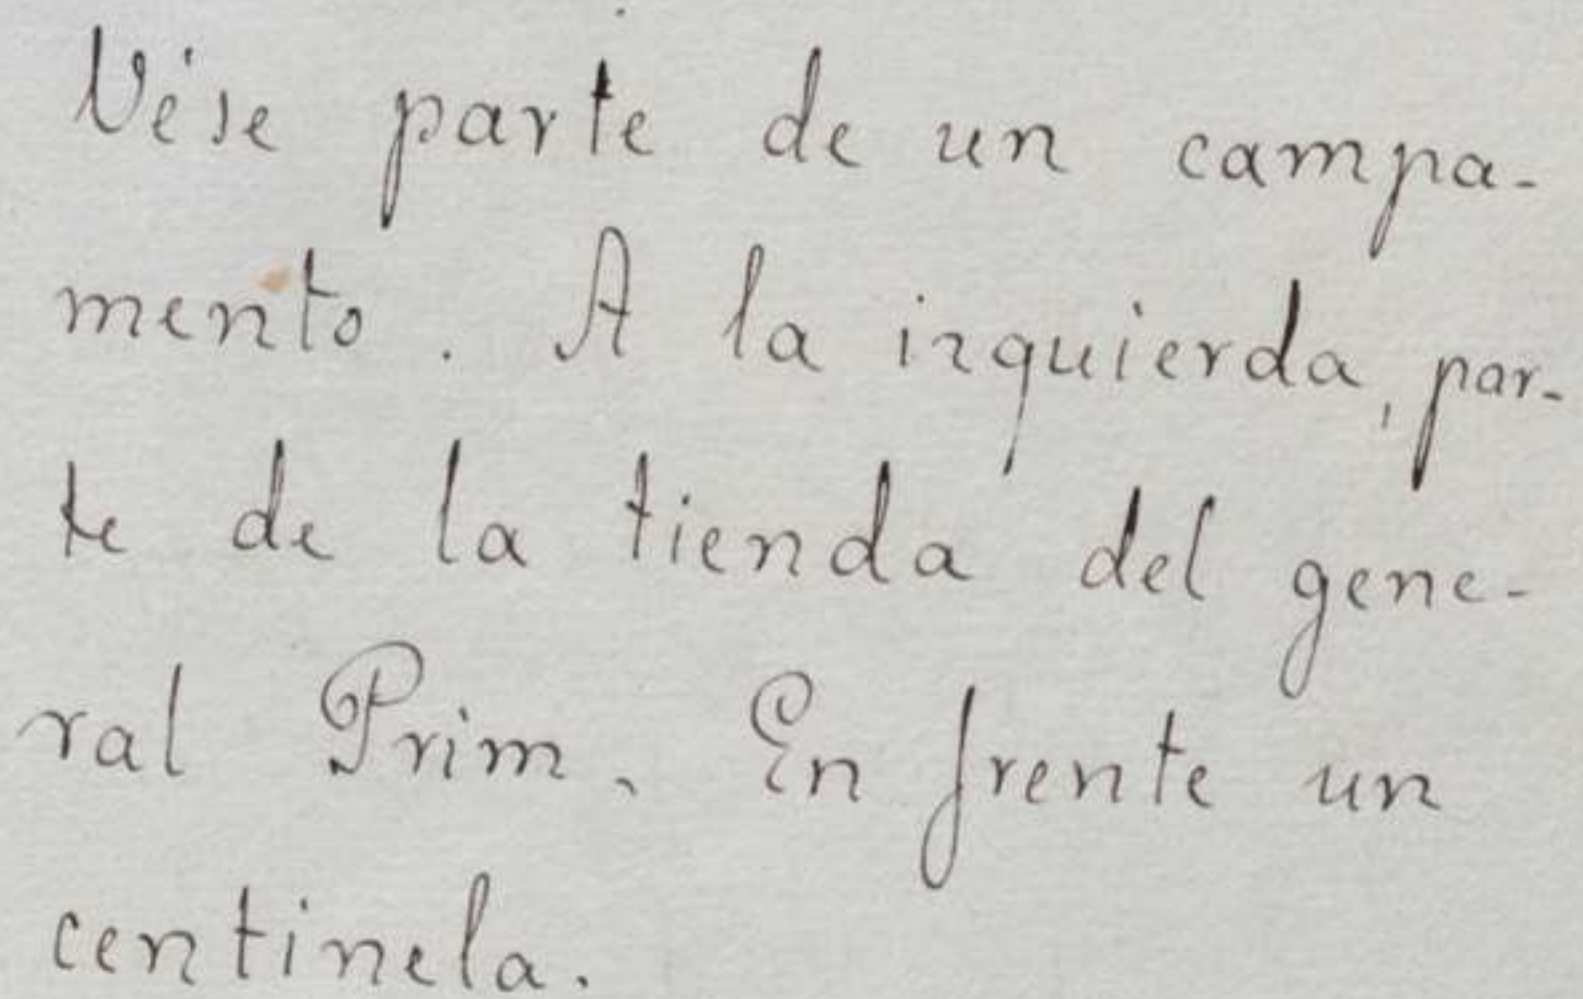 Vése parte de un campa-
mento. A la izquierda, par-
te de la tienda del gene-
ral Prim. En frente un
centinela.